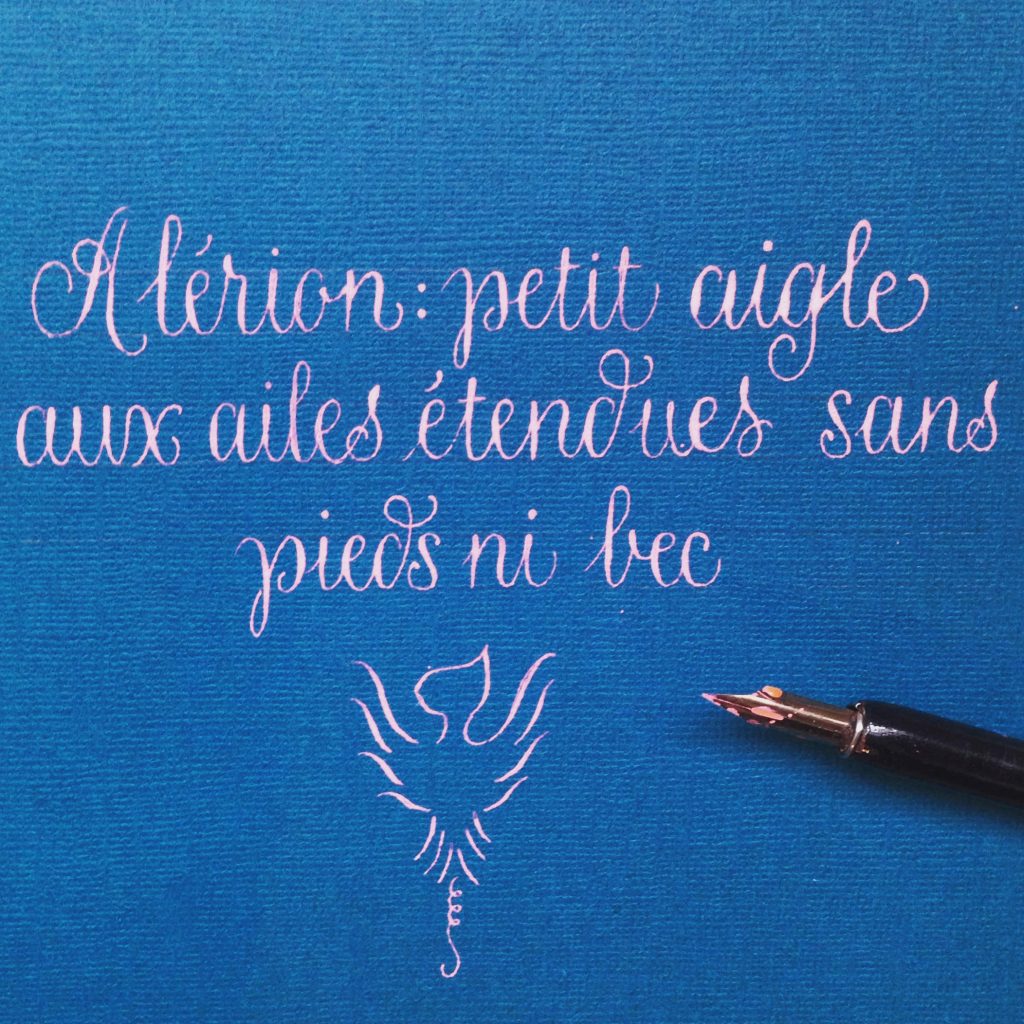 Alérion : petit aigle
aux ailes étendues sans
pieds ni bec